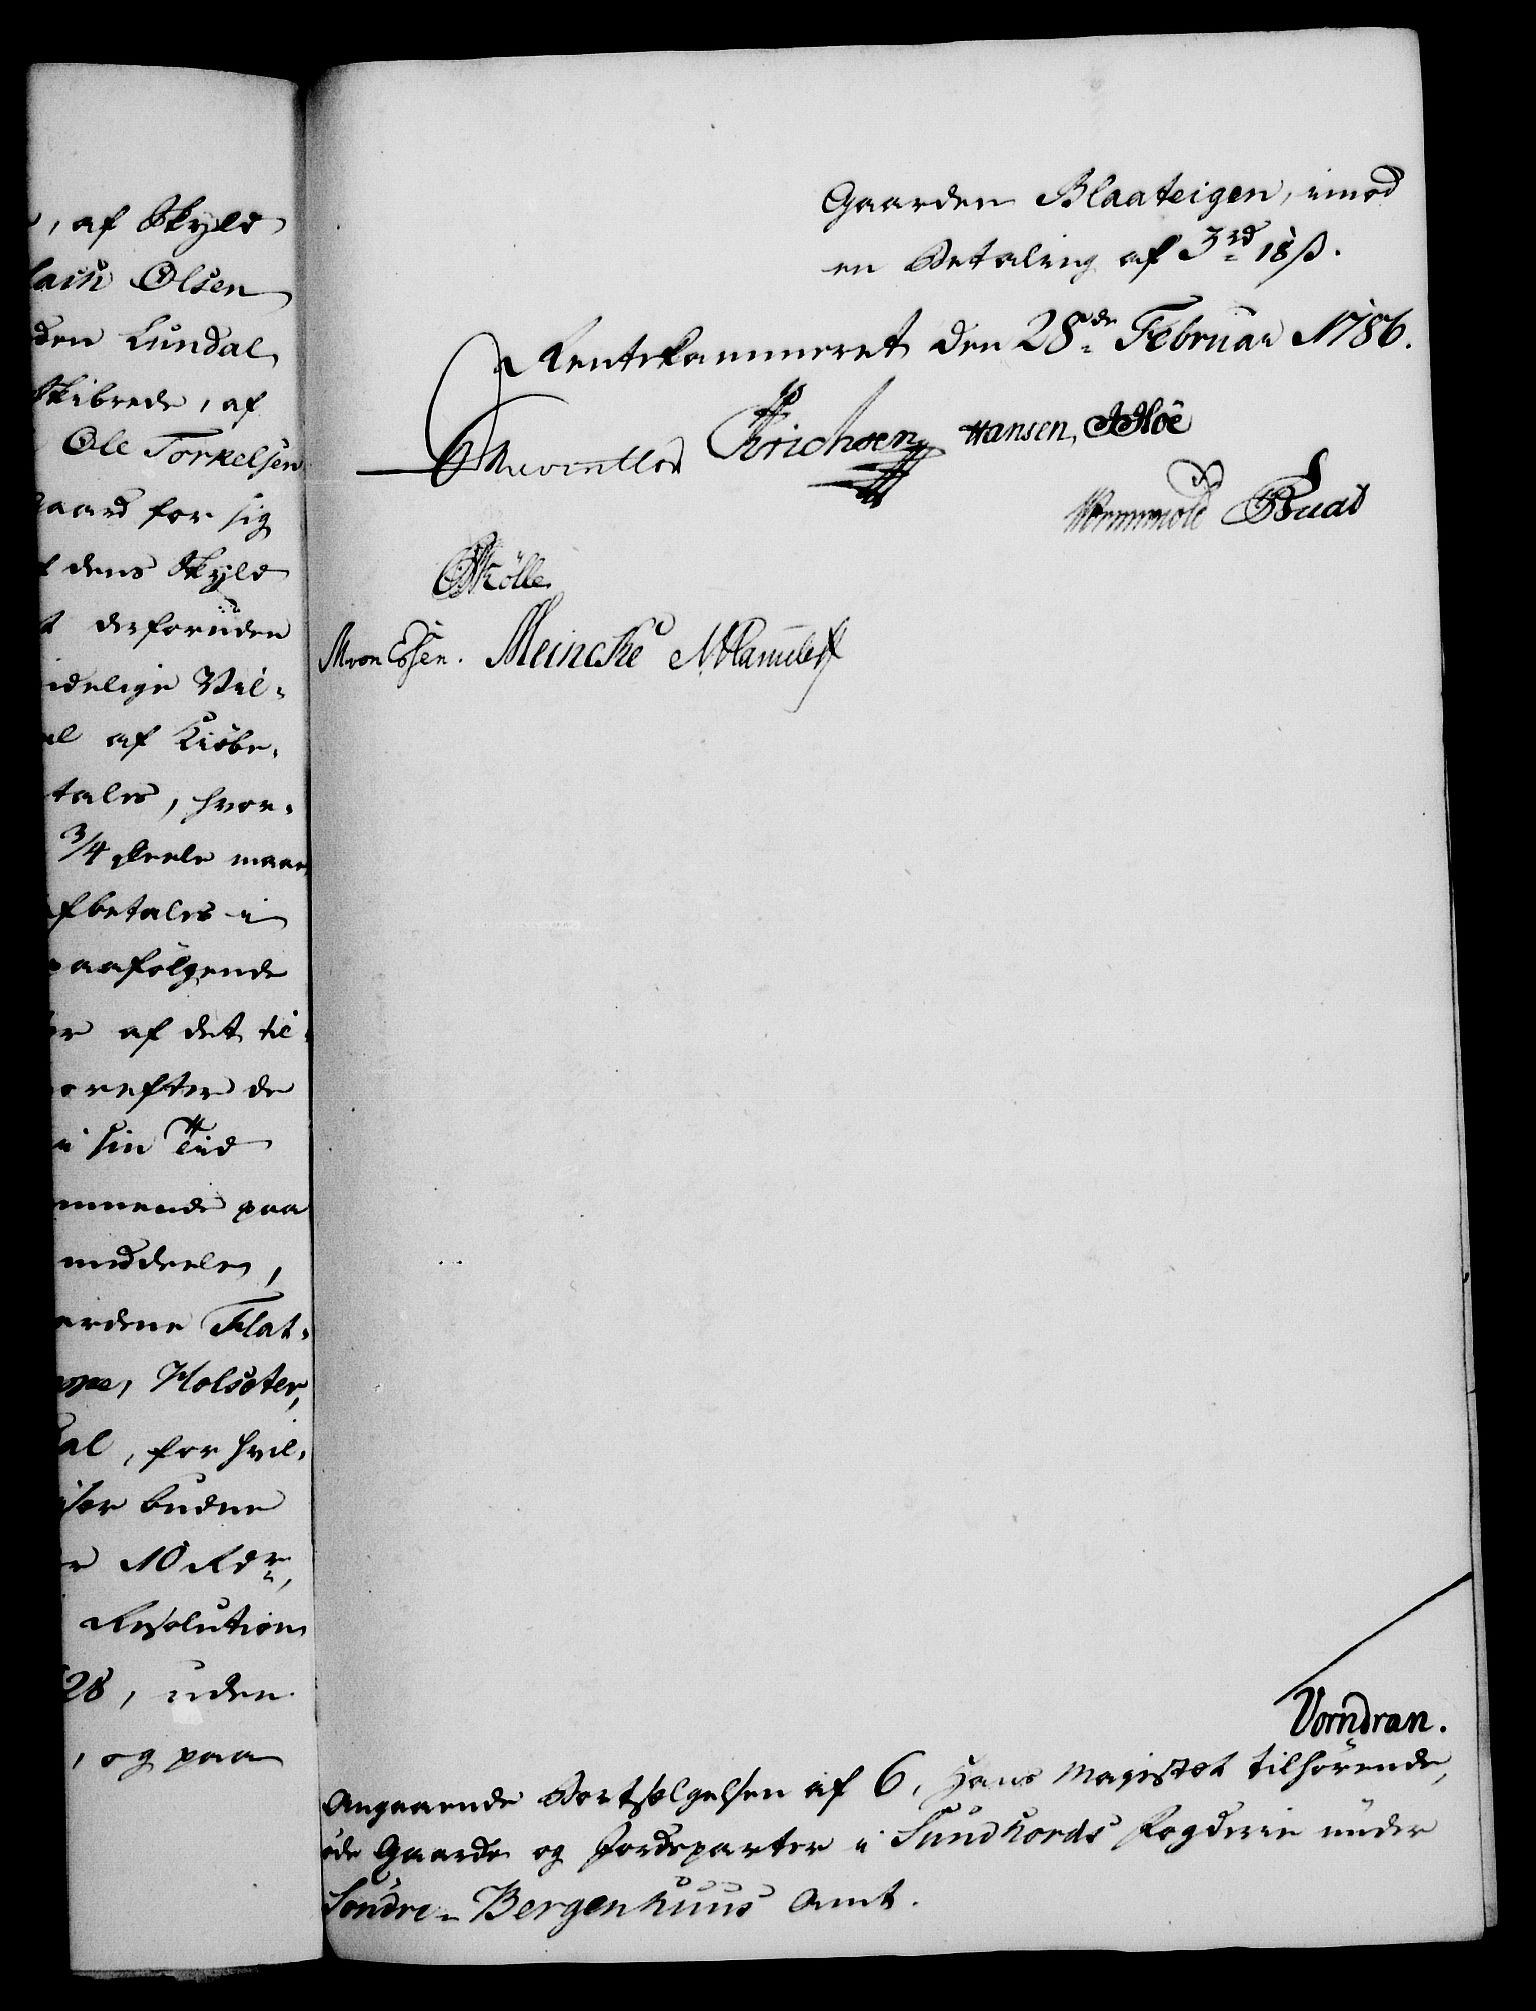 , af Skyld
Olsen
den Lundal
Skibrede, af
Ole Torkelsen
gaard for sig
dens Skyld
derforuden
idelige Vil-
af Kiøbe-
tales, hvor-
3/4 deele maae
fbetales i
paafølgende
af det til-
orefter de
i sin Tiid
mmende paa
meddeele,
ardene Flat-
Holsæter,
al, for hvil-
budne
10 Rdr,
Resolution
28, uden
, og paa
Gaarden Blaateigen, imod
en Betaling af 3rd 18 ß.
Rentekammeret den 28de Februar 1786.
Reventlow Erichsen Hansen, JHoë
Wormwold Buad
Kølle
M von Essen. Meincke
Vorndran.
Angaaende Bortsælgelsen af 6, Hans Majestæt tilhørende,
øde Gaarde og Jordeparter i Sundhords Fogderie under
Søndre-Bergenhuus Amt.